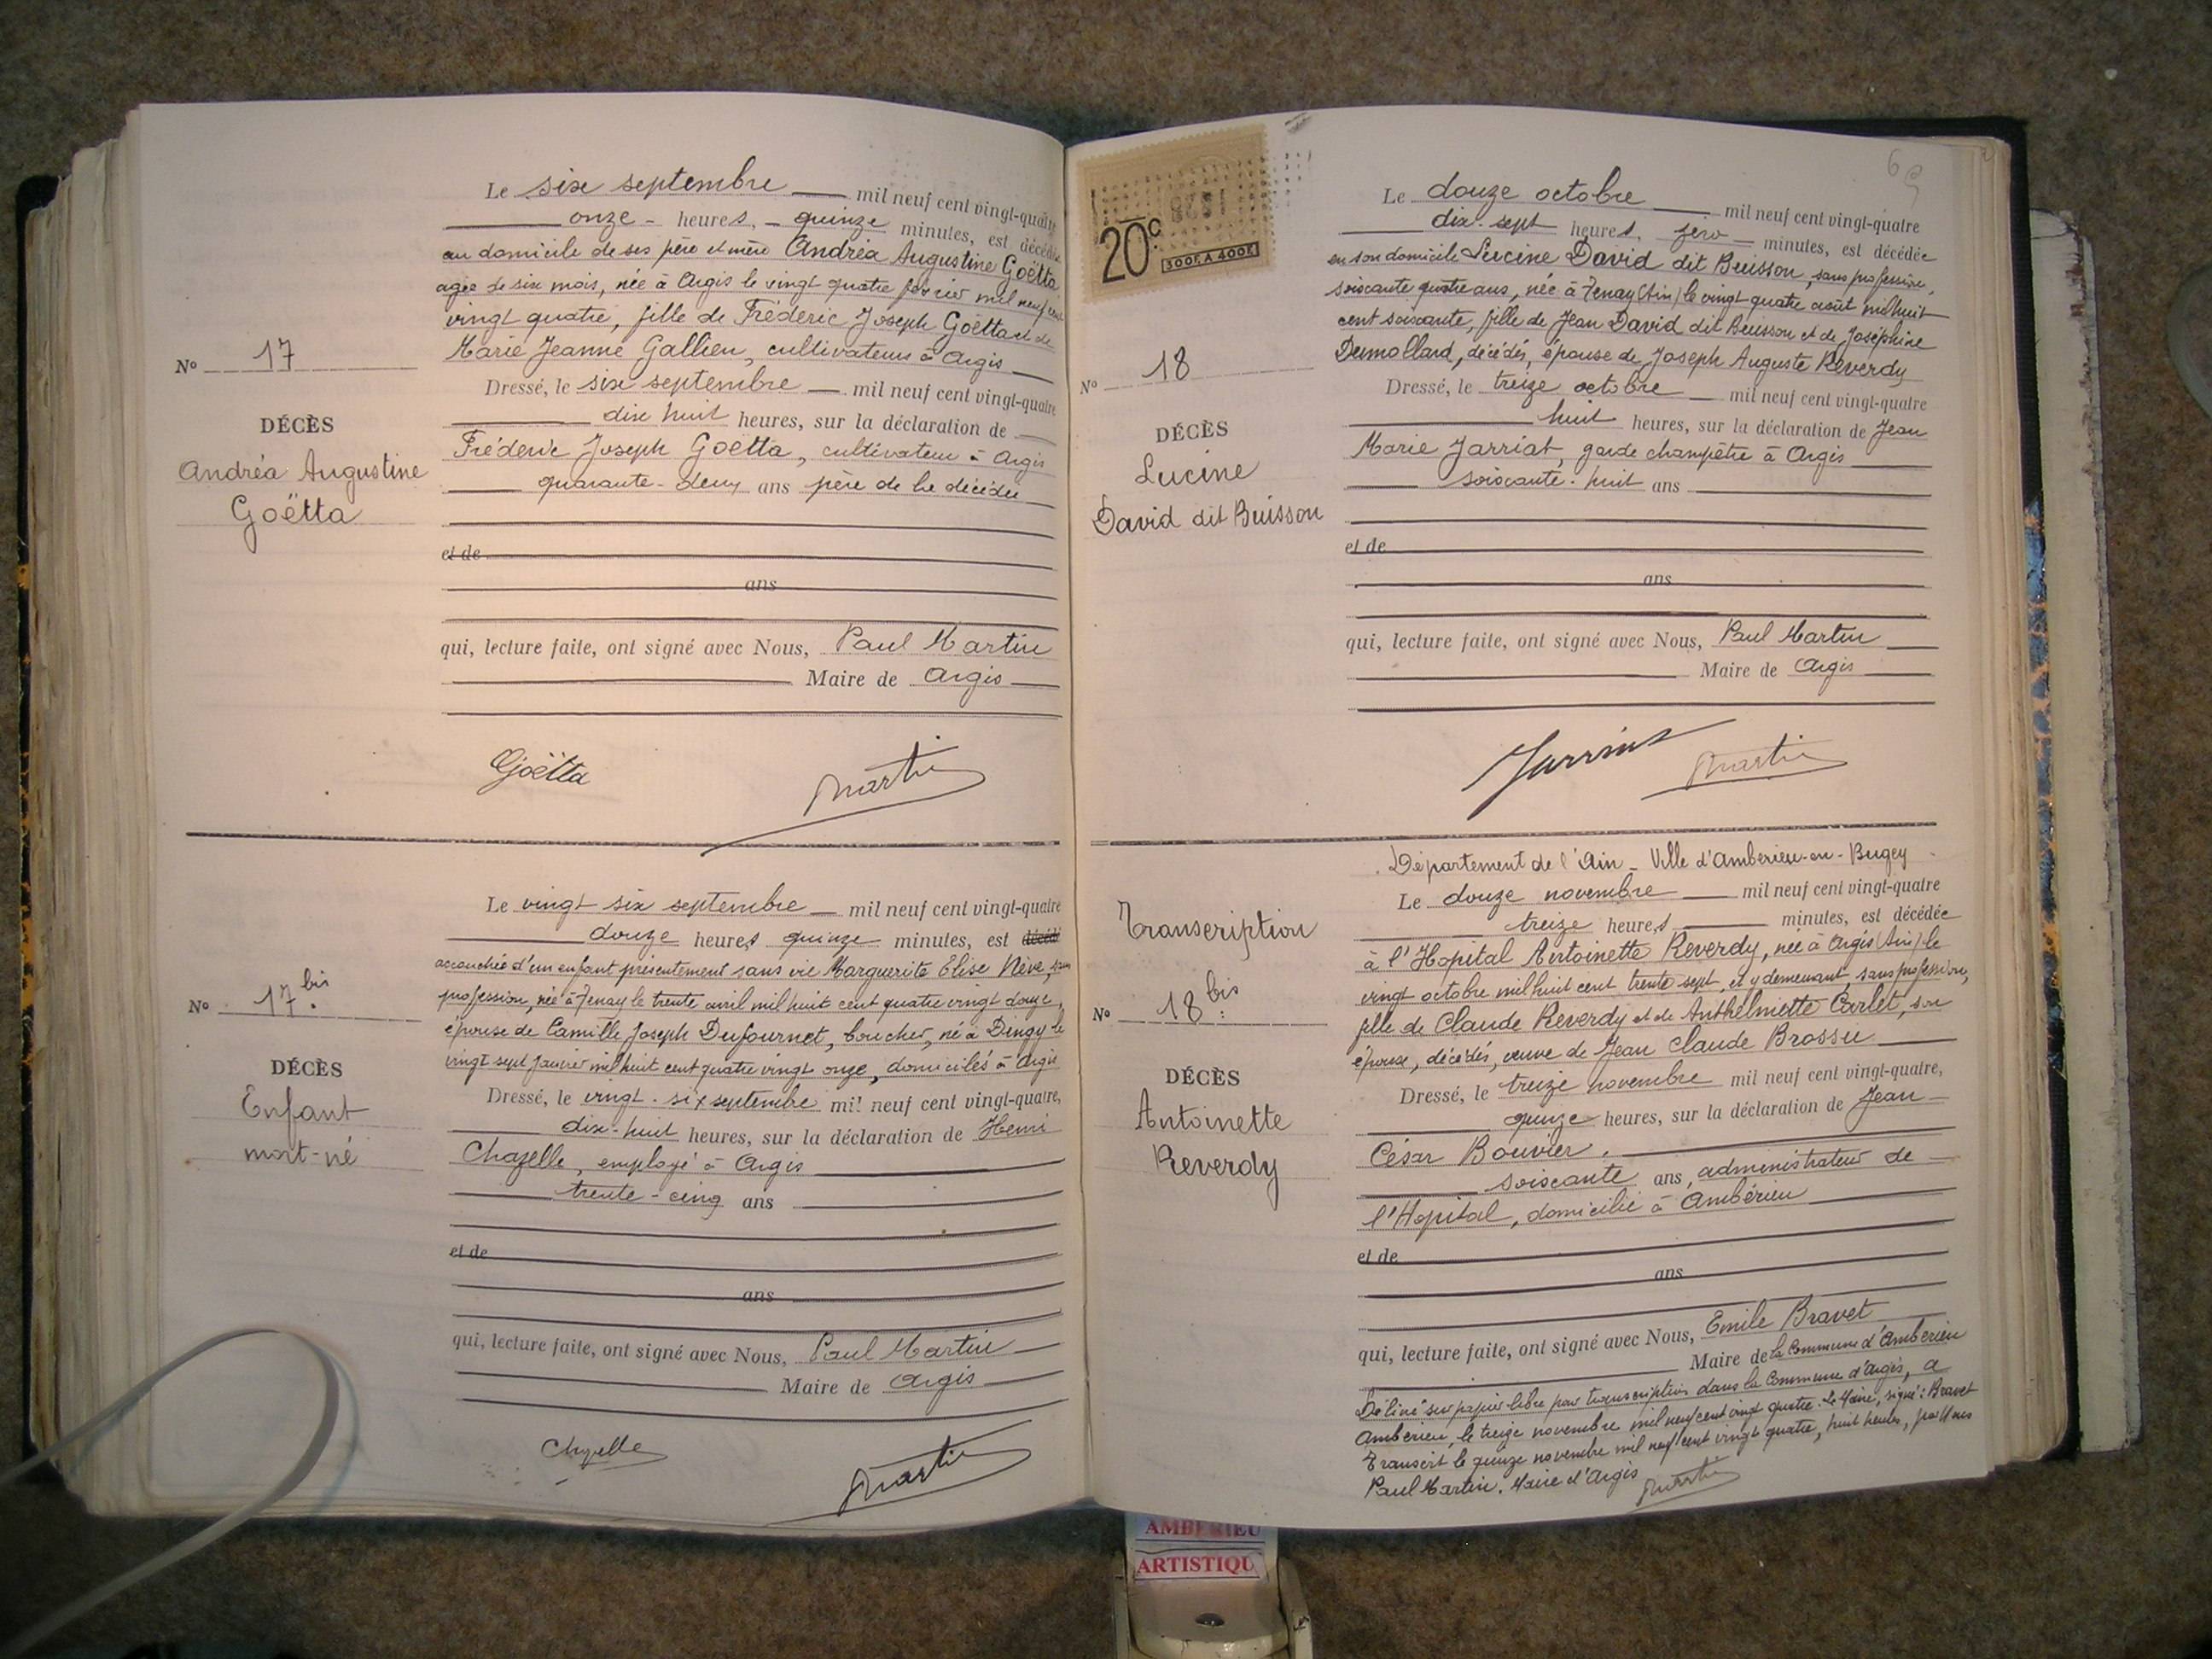 Le six septembre mil neuf cent vingt-quatre
onze heures, quinze minutes, est décédée
au domicile de ses père et mère Andréa Augustine Goëtta
agée de six mois, née à Argis le vingt quatre février mil neuf cent
vingt quatre, fille de Fréderic Joseph Goëtta et de
Marie Jeanne Gallien, cultivateurs à Argis
No 17
DÉCÈS
Andréa Augustine
Goëtta
Dressé, le six septembre mil neuf cent vingt-quatre
dix huit heures, sur la déclaration de
Fréderic Joseph Goëtta, cultivateur à Argis
quarante-deux ans père de la décédée
et de
ans
qui, lecture faite, ont signé avec Nous, Paul Martin
Maire de Argis
Goëtta
Martin
Le vingt six septembre mil neuf cent vingt-quatre
douze heures quinze minutes, est décédé
accouchée d'un enfant présentement sans vie Marguerite Elise Nève, sans
profession, née à Tenay le trente avril mil huit cent quatre vingt douze,
épouse de Camille Joseph Dufournet, boucher, né à Dingy le
vingt sept janvier mil huit cent quatre vingt onze, domiciliés à Argis
No 17 bis
DÉCÈS
Enfant
mort-né
Dressé, le vingt-six septembre mil neuf cent vingt-quatre,
dix-huit heures, sur la déclaration de Henri
Chazelle, employé à Argis
trente-cinq ans
et de
ans
qui, lecture faite, ont signé avec Nous, Paul Martin
Maire de Argis
Chazelle
Martin
20c.
300F. A 400F.
Le douze octobre mil neuf cent vingt-quatre
dix-sept heures, zéro minutes, est décédée
en son domicile Lucine David dit Buisson, sans profession,
soixante quatre ans, née à Tenay (Ain) le vingt quatre août mil huit
cent soixante, fille de Jean David dit Buisson et de Joséphine
Dumollard, décédés, épouse de Joseph Auguste Reverdy
No 18
DÉCÈS
Lucine
David dit Buisson
Dressé, le treize octobre mil neuf cent vingt-quatre
huit heures, sur la déclaration de Jean
Marie Jarriat, garde champêtre à Argis
soixante-huit ans
et de
ans
qui, lecture faite, ont signé avec Nous, Paul Martin
Maire de Argis
Martin
Département de l'Ain - Ville d'Ambérieu-en-Bugey
Le douze novembre mil neuf cent vingt-quatre
treize heures minutes, est décédée
à l'Hopital Antoinette Reverdy, née à Argis (Ain) le
vingt octobre mil huit cent trente sept, et y demeurant, sans profession,
fille de Claude Reverdy et de Anthelmette Carlet, son
épouse, décédés, veuve de Jean Claude Brossu
Transcription
No 18 bis
DÉCÈS
Antoinette
Reverdy
Dressé, le treize novembre mil neuf cent vingt-quatre,
quinze heures, sur la déclaration de Jean
César Bouvier,
soixante ans, administrateur de
l'Hopital, domicilié à Ambérieu
et de
ans
qui, lecture faite, ont signé avec Nous, Emile Bravet
Maire de la Commune d'Ambérieu
Délivré sur papier libre pour transcription dans la Commune d'Argis, a
Ambérieu, le treize novembre mil neuf cent vingt quatre. Le Maire, signé: Bravet
Transcrit le quinze novembre mil neuf cent vingt quatre, huit heures, par Nous
Paul Martin, Maire d'Argis
Martin
AMBERIEU
ARTISTIQU